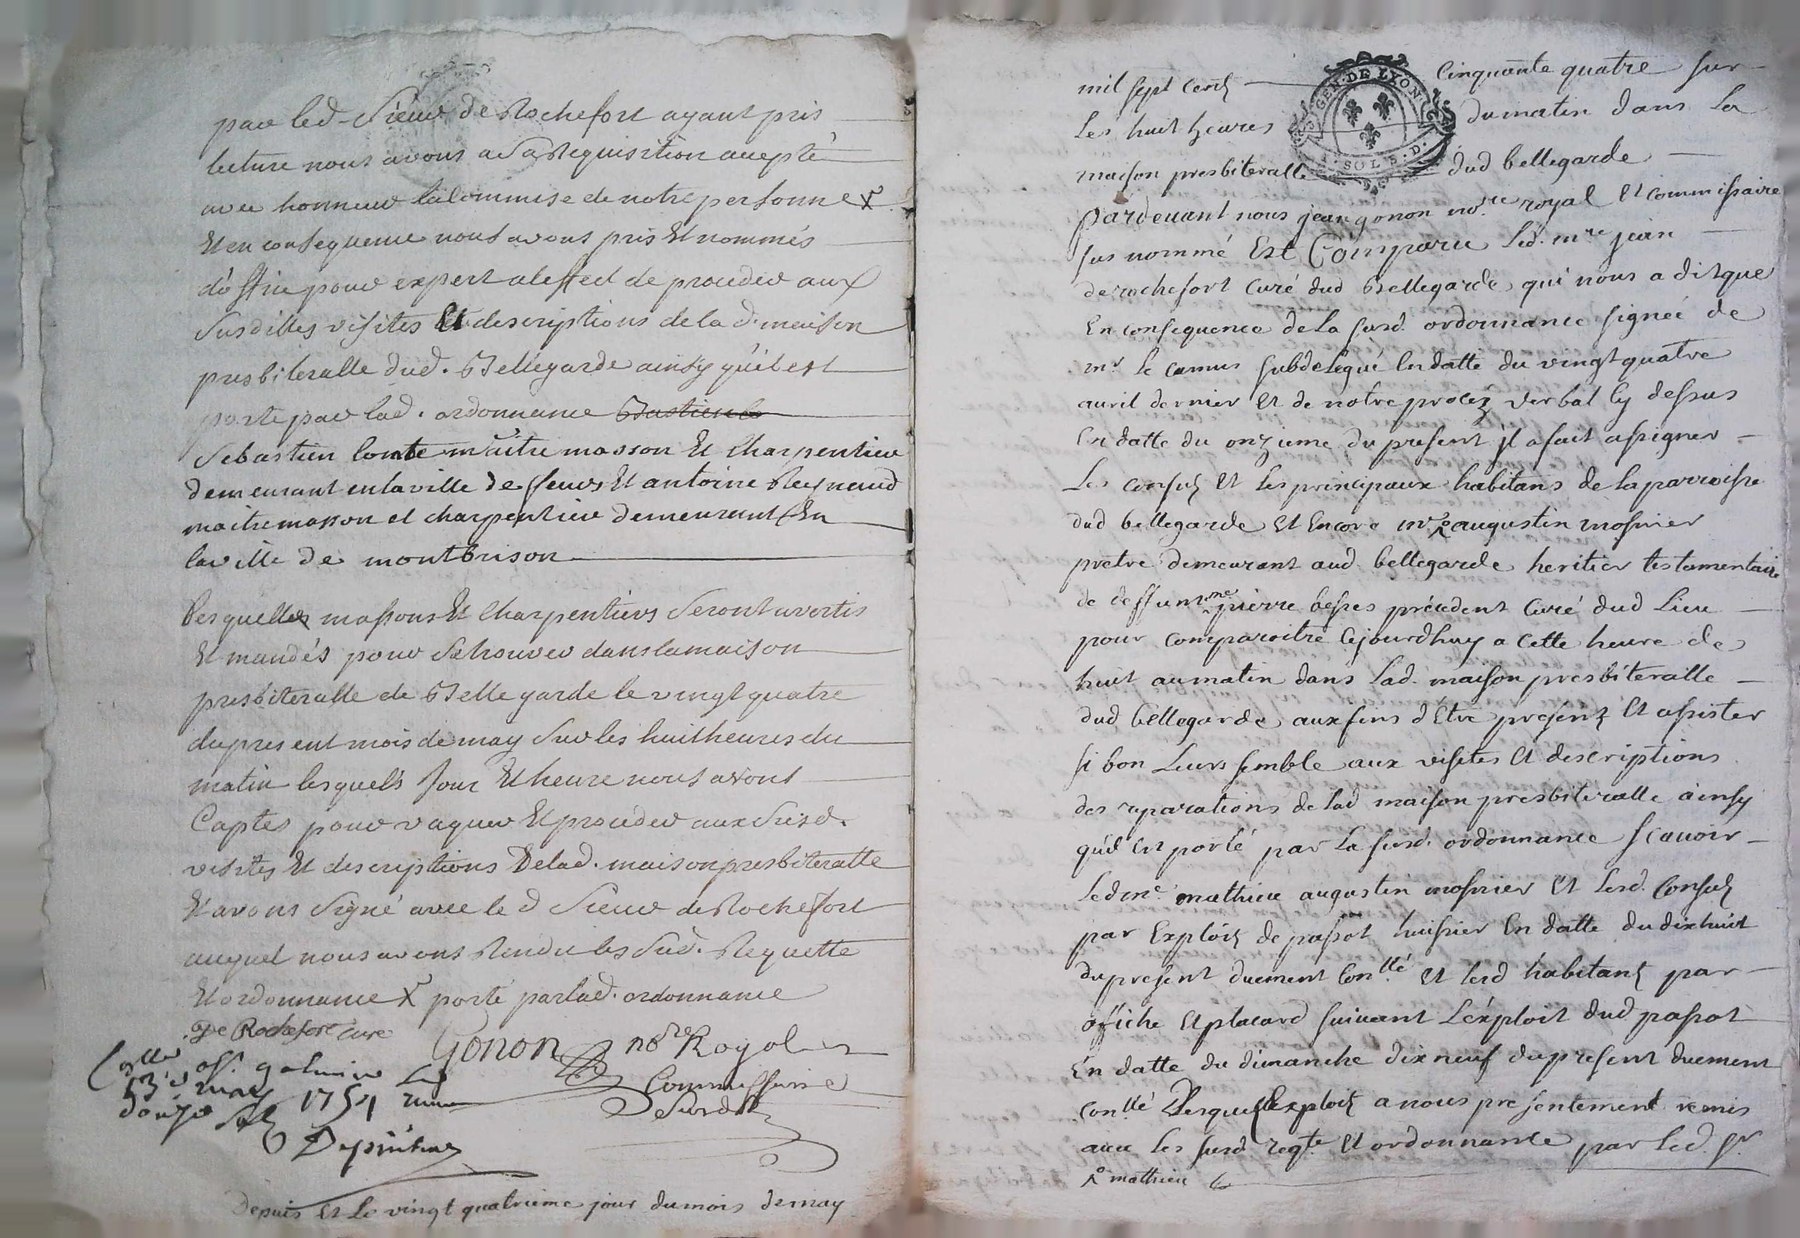 par led. Sieur de Rochefort ayant pris
lecture nous avons a Sa Requisition accepté
avec honneur la commise de notre personne X
Et en consequence nous avons pris Et nommés
d'office pour expert a leffect de proceder aux
Susdittes visites Et descriptions de lad. maison
presbiteralle dud. Bellegarde ainsy qu'il est
porte par lad. ordonnance
Sebastien Comte maitre masson Et Charpentier
demeurant en la ville de feurs Et antoine Reynaud
maitre masson et charpentier demeurant En
la ville de montbrison
lesquelles massons Et Charpentiers Seront avertis
Et mandés pour Se trouver dans la maison
presbiteralle de Bellegarde le vingt quatre
du present mois de may Sur les huit heures du
matin lesquels Jour Et heure nous avons
Captes pour vaquer Et proceder aux Susd.
visites Et descriptions De lad. maison presbiteralle
Et avons Signé avec le d Sieur de Rochefort
auquel nous avons Rendu les Sud. Requette
Et ordonnance X porté par lad. ordonnance
De Rochefort curé
Gonon nore Royal
Commissaire
Susdit
Conllé a St galmier le
13e may 1754 reçu
douze sols
Depuis Et Le vingt quatrieme jour du mois de may
mil sept cent cinquante quatre sur
Les huit heures du matin dans La
maison presbiteralle dud bellegarde
GEN. DE LYON
SOL 8. D.
pardevant nous jean gonon nore. royal Et commissaire
sus nommé Est Comparu Led. mre jean
de rochefort Curé dud Bellegarde qui nous a dit que
En consequence de La susd. ordonnance signée de
mr. le camus subdelegué En datte du vingt quatre
avril dernier Et de notre procez verbal Cy dessus
En datte du onzieme du present jl a fait assigner
Les Consulz Et Les principaux habitans de la parroisse
dud bellegarde Et Encore mre augustin mosnier
pretre demeurant aud. bellegarde heritier testamentaire
de deffunt mre pierre besses précedent Curé dud Lieu
pour comparoitre Cejourdhuy a cette heure de
huit au matin dans Lad. maison presbiteralle
dud bellegarde aux fins d'Etre presentz Et assister
si bon Leurs semble aux visites Et descriptions
des reparations de lad maison presbiteralle ainsy
qu'il Est porté par La susd. ordonnance scavoir
Led mre. mathieu augustin mosnier Et Lesd. Consulz
par Exploit de passot huissier En datte du dix huit
du present duement Conllé Et lesd habitantz par
affiche Et placard suivant L'exploit dud passot
En datte du dimanche dix neuf du present duement
conllé Lesquels Exploitz a nous presentement remis
avec Les susd reqte Et ordonnance par Led. Sr.
mathieu